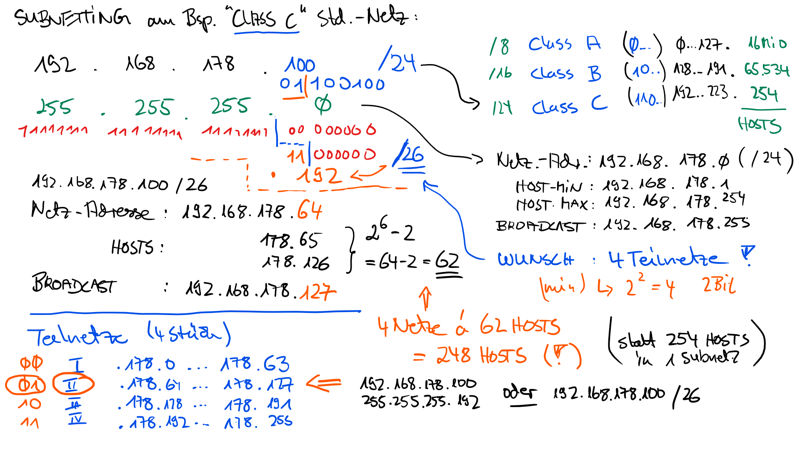 SUBNETTING am Bsp. "CLASS C" Std.-Netz:
192 . 168 . 178 . 100 /24
01|100100
255 . 255 . 255 . 0
11111111 11111111 11111111 00 000000
11|000000 /26
. 192
192.168.178.100/26
Netz-Adresse : 192.168.178.64
HOSTS : 178.65
178.126
2^6-2
=64-2=62
BROADCAST : 192.168.178.127
/8 Class A (0..) 0...127. 16Mio
/16 Class B (10..) 128...191. 65.534
/24 Class C (110..) 192...223. 254
HOSTS
Netz.-Adr.: 192.168.178.0 (/24)
HOST-MIN : 192.168.178.1
HOST MAX : 192.168.178.254
BROADCAST : 192.168.178.255
WUNSCH : 4 Teilnetze !
(min) ↳ 2^2=4 2Bit
4 Netze à 62 HOSTS
= 248 HOSTS (!)
(statt 254 HOSTS
in 1 Subnetz)
Teilnetze (4 Stück)
00 I .178.0 ... 178.63
01 II .178.64 ... 178.127
10 III .178.128 ... 178.191
11 IV .178.192... 178.255
192.168.178.100
255.255.255.192 oder 192.168.178.100/26